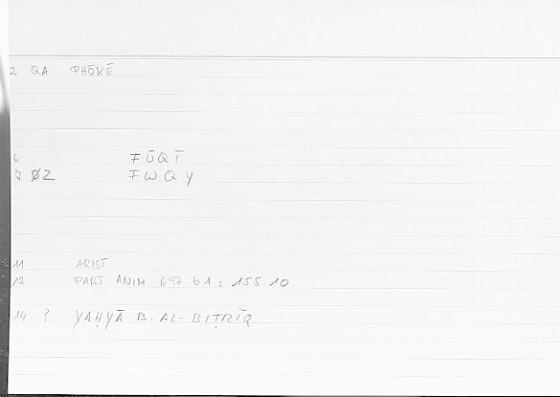 2 QA PHŌKĒ
6 FŪQĪ
7 ØZ FWQY
11 ARIST
12 PART ANIM 697 b1 : 155.10
14 ? YAḤYĀ B. AL-BIṬRĪQ